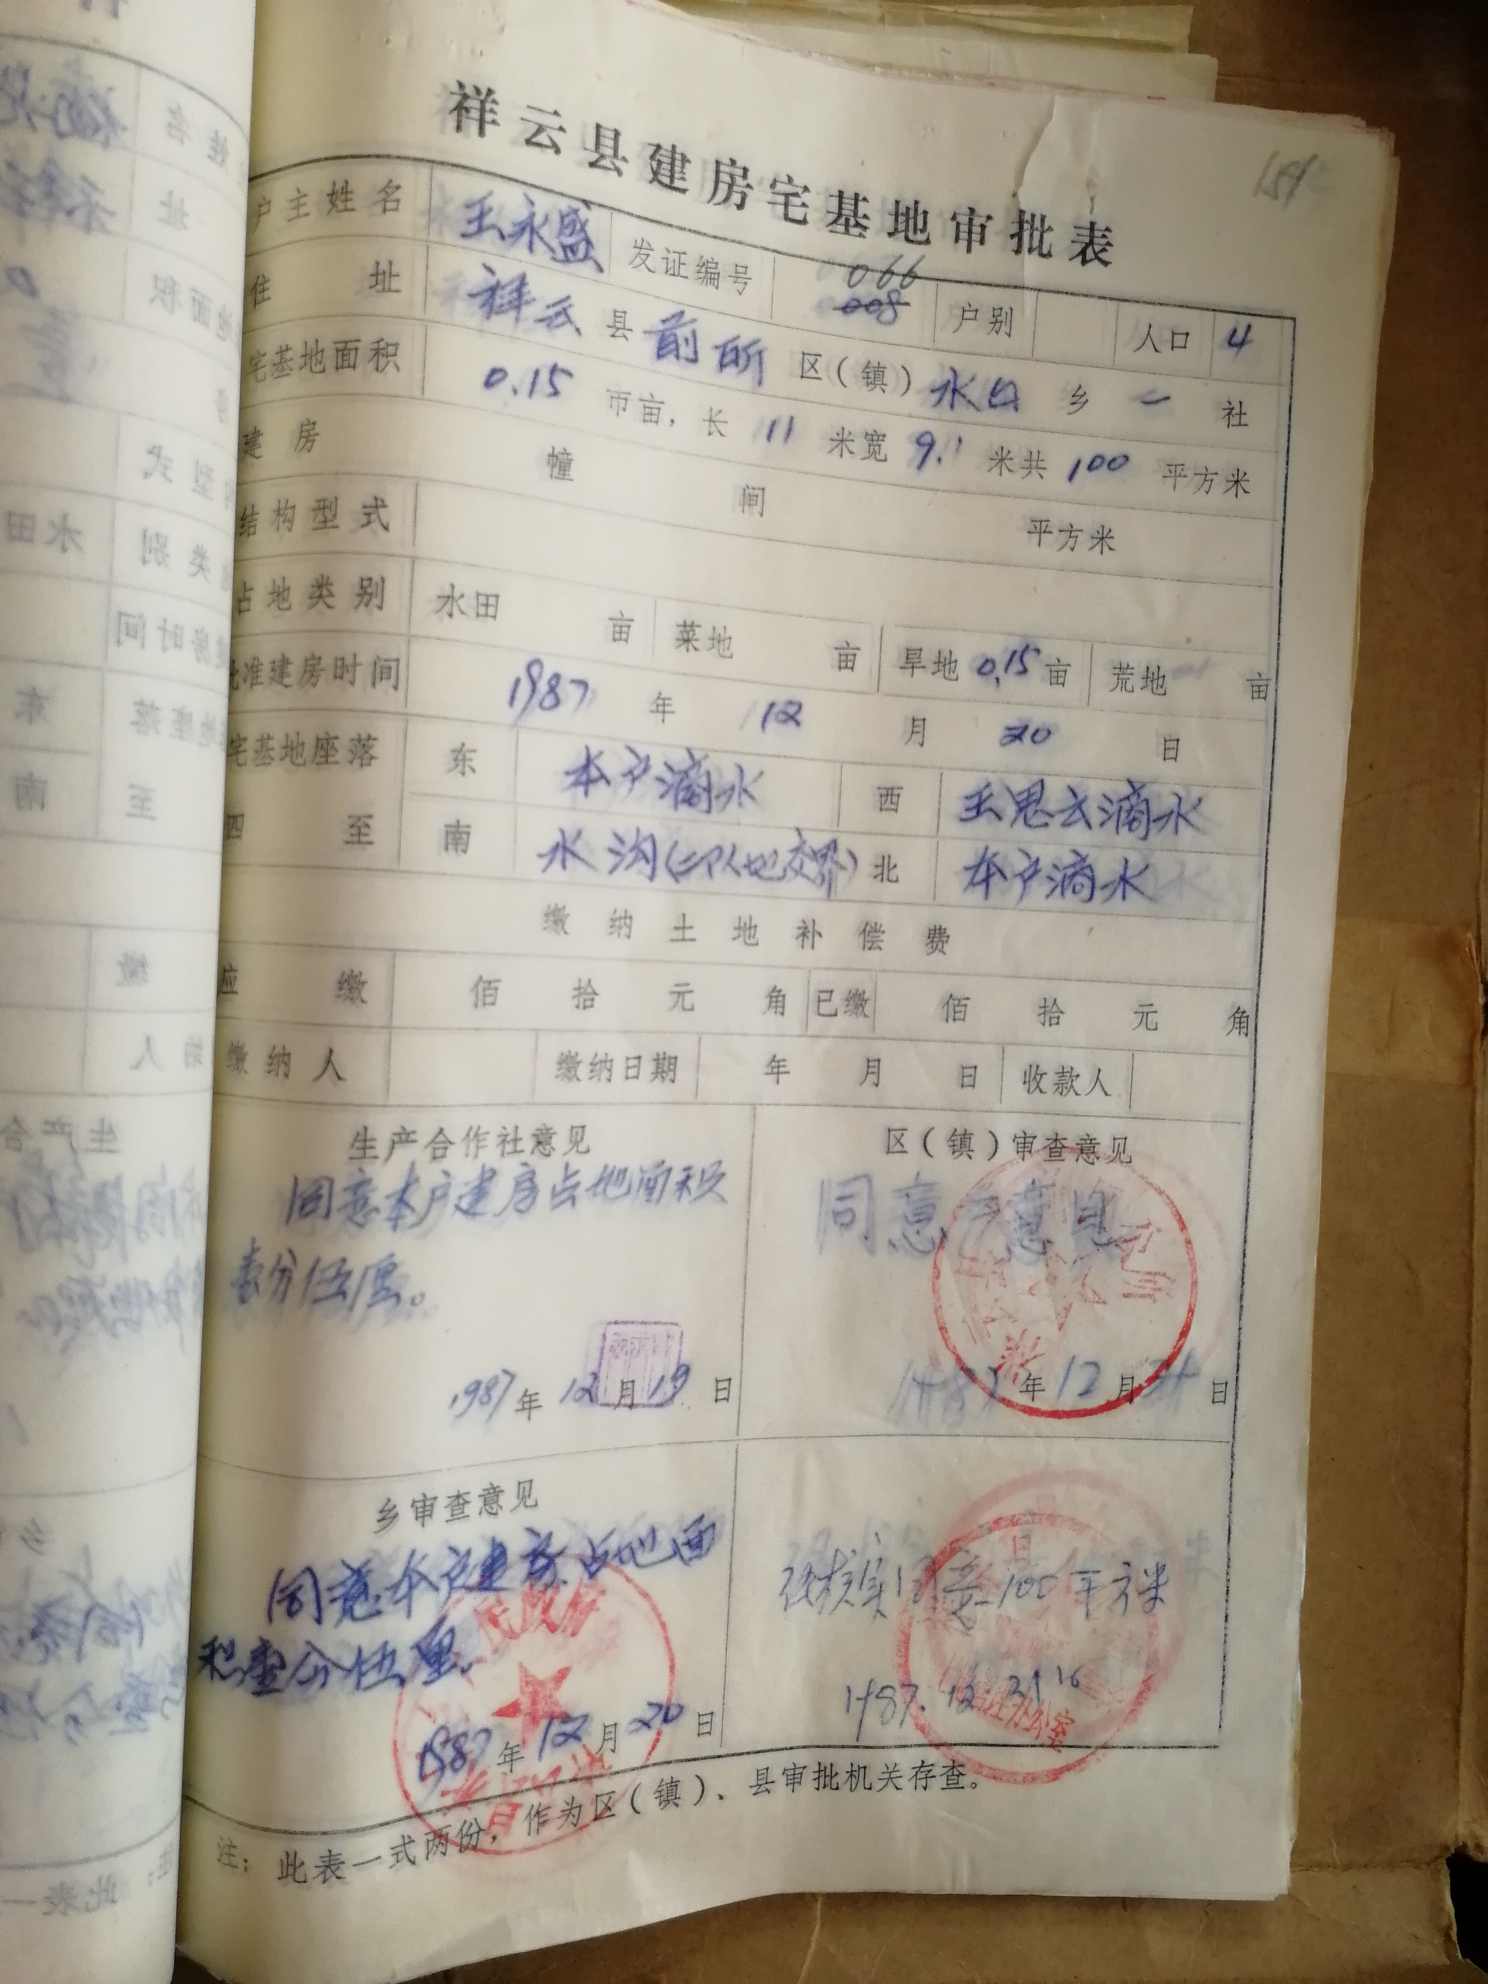 祥云县建房宅基地审批表
户主姓名 王永盛 发证编号 066 008 户别 人口 4
住址 祥云 县 前所 区(镇) 水口 乡 一 社
宅基地面积 0.15 市亩，长 11 米宽 9.1 米共 100 平方米
建房 幢 间 平方米
结构型式
占地类别 水田 亩 菜地 亩 旱地 0.15 亩 荒地 亩
批准建房时间 1987 年 12 月 20 日
宅基地座落 东 本户滴水 西 王思云滴水
四至 南 水沟(二队地交界) 北 本户滴水
缴纳土地补偿费
应缴 佰 拾 元 角 已缴 佰 拾 元 角
缴纳人 缴纳日期 年 月 日 收款人
生产合作社意见 区(镇)审查意见
同意本户建房占地面积
壹分伍厘。
同意 意见
1987年12月19日 1987年12月31日
乡审查意见
同意本户建房占地面
积壹分伍厘.
经核实同意100平方米
1987年12月20日
1987.12.31
办公室
注：此表一式两份，作为区(镇)、县审批机关存查。